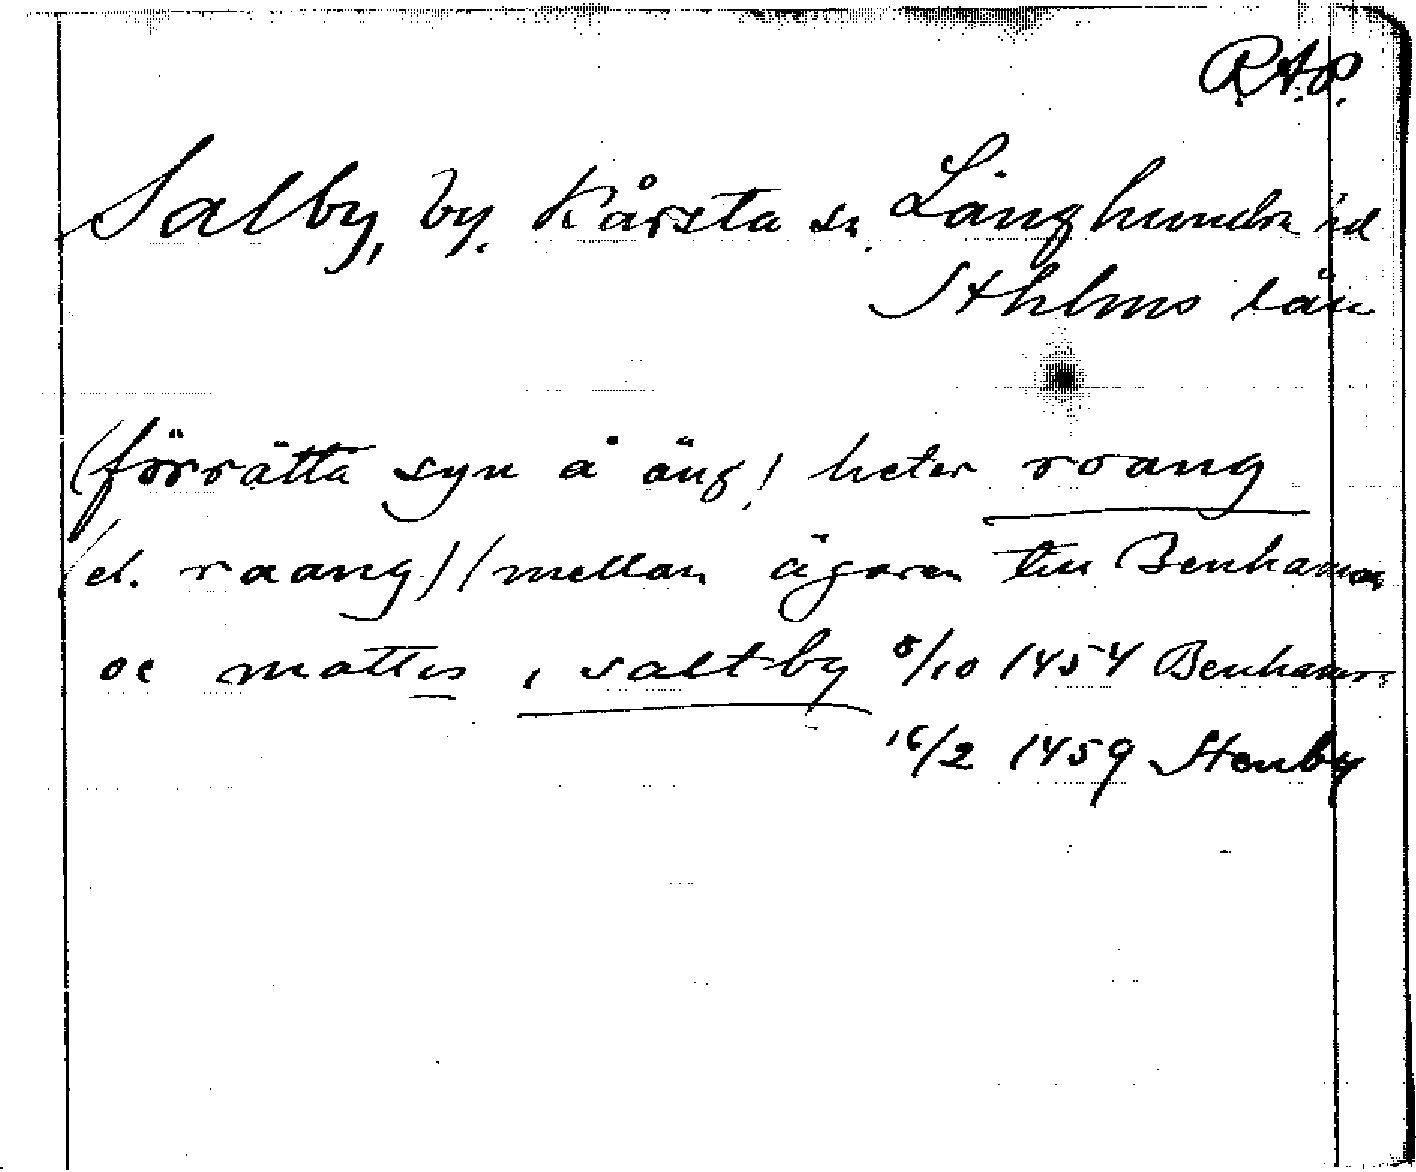 R.A.P.
Salby, by. Kårsta sn. Långhundra hd
Sthlms län
(förrätta syn å äng) heter roang
(el. raang) (mellan ägaren till Benhamar
oc mattis i saltby 8/10 1454 Benhamr.
16/2 1459 Stenby